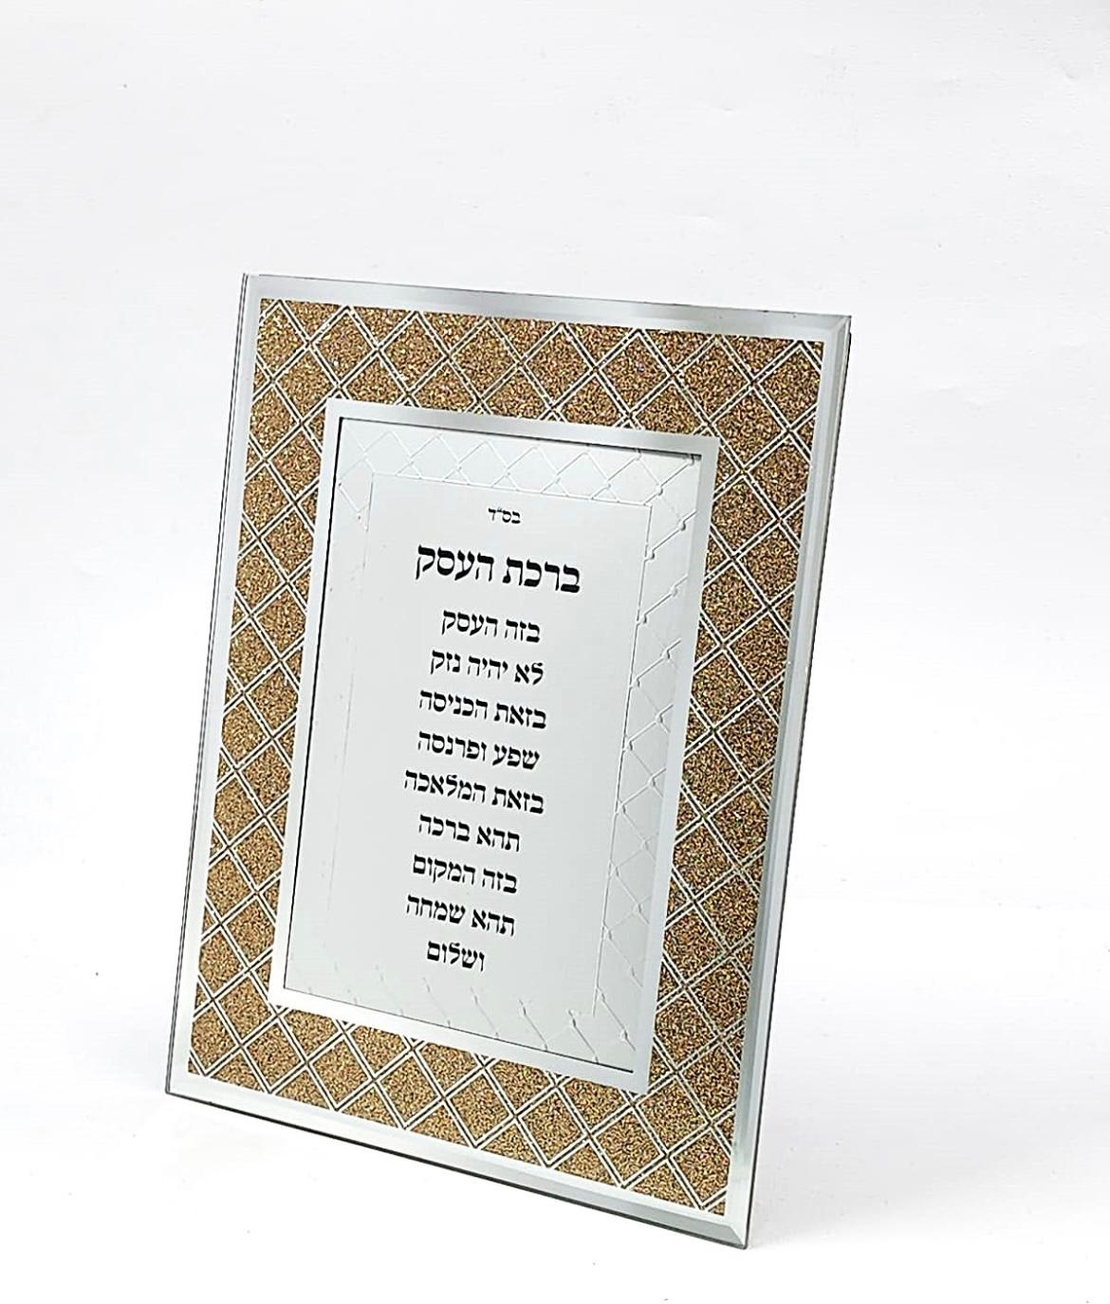 בס״ד
ברכת העסק
בזה העסק
לא יהיה נזק
בזאת הכניסה
שפע ופרנסה
בזאת המלאכה
תהא ברכה
בזה המקום
תהא שמחה
ושלום